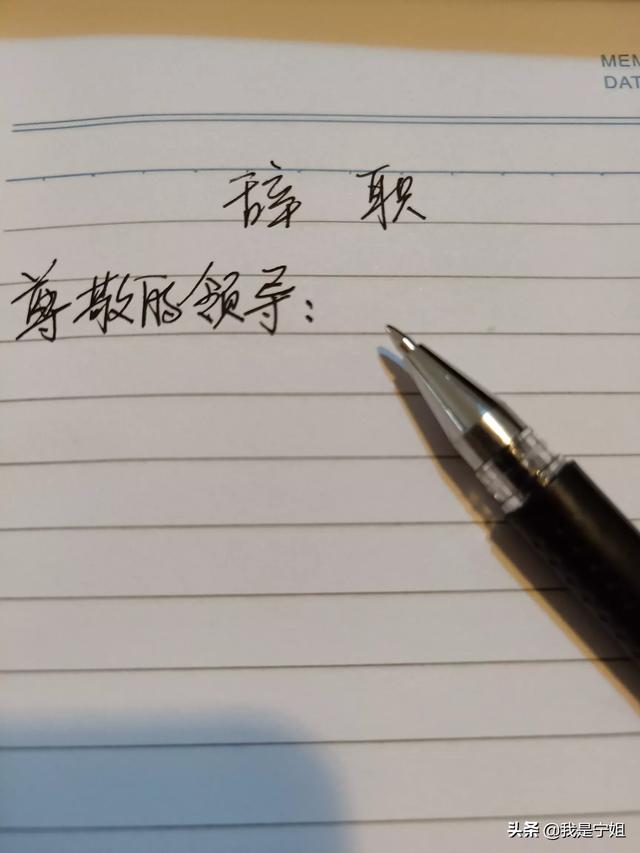 MEM
DAT
辞 职
尊敬的领导：
头条 @我是宁姐